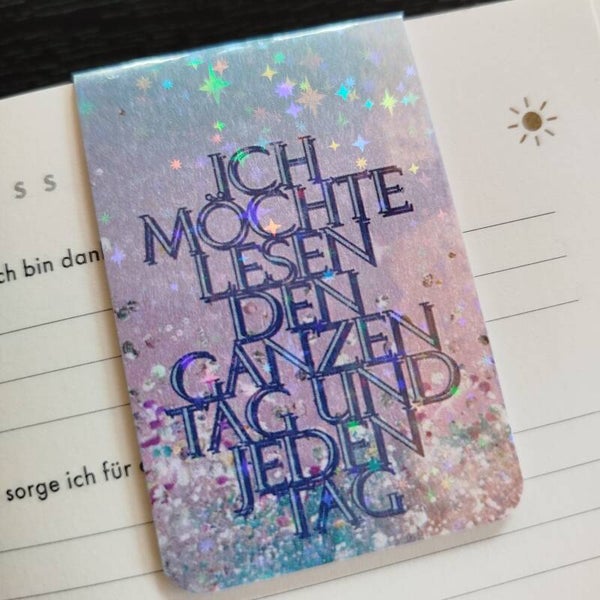 ICH
MÖCHTE
LESEN
DEN
GANZEN
TAG UND
JEDEN
TAG
S S
ch bin dank
sorge ich für